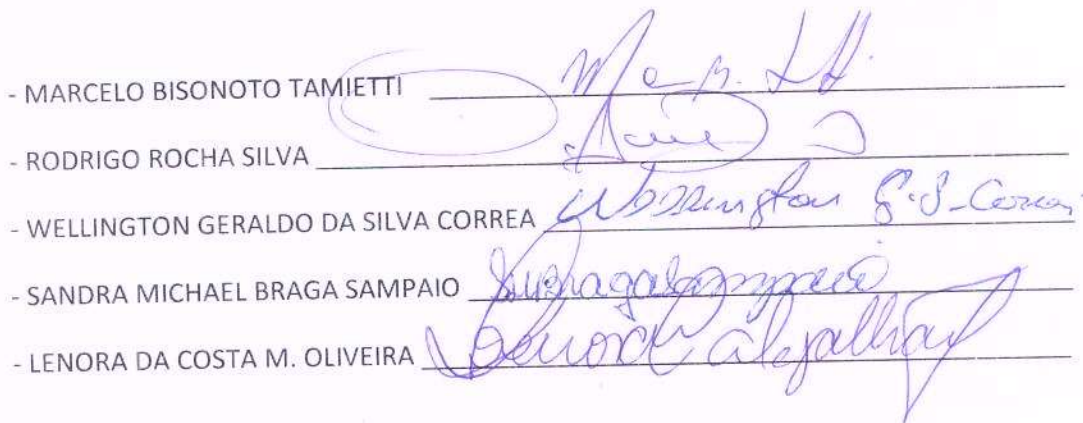 - MARCELO BISONOTO TAMIETTI
- RODRIGO ROCHA SILVA
- WELLINGTON GERALDO DA SILVA CORREA Wellington G.S. Correa
- SANDRA MICHAEL BRAGA SAMPAIO SMBragaSampaio
- LENORA DA COSTA M. OLIVEIRA Lenora